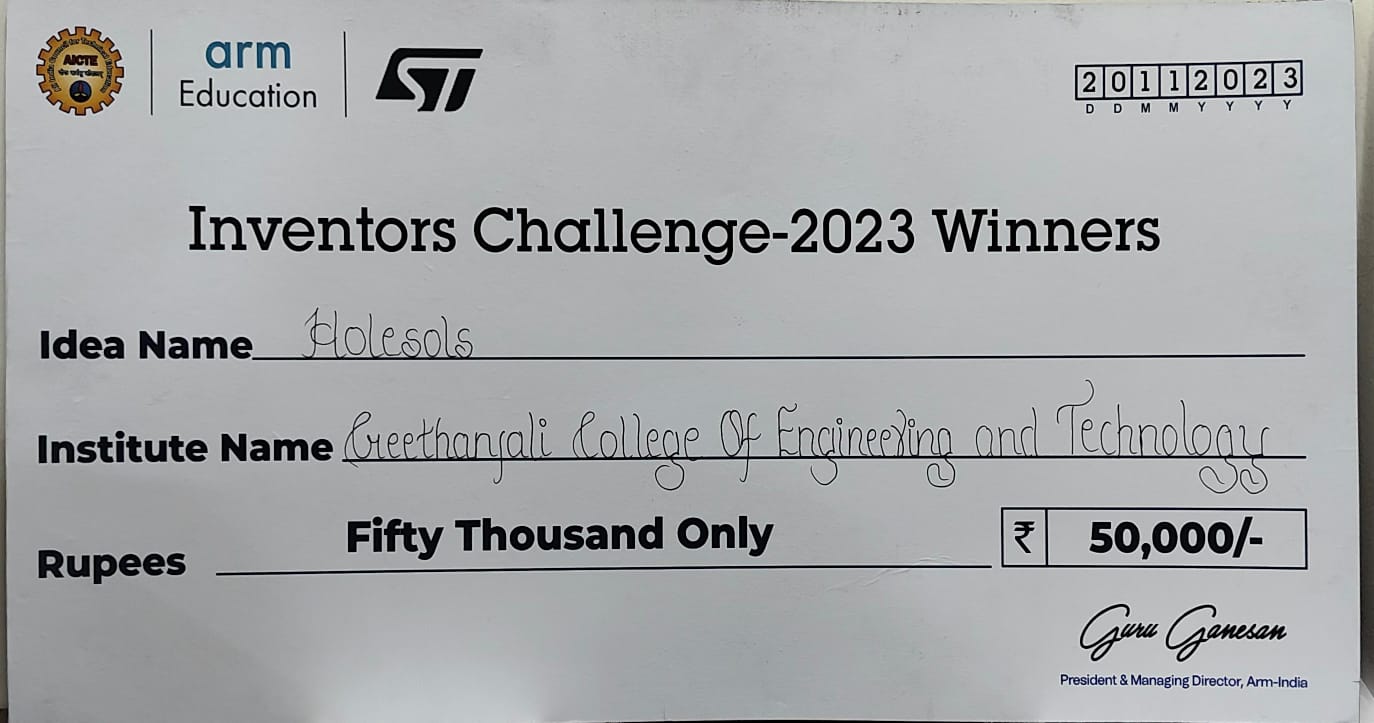 AICTE
arm
Education
ST
20112023
D D M M Y Y Y Y
Inventors Challenge-2023 Winners
Idea Name Holesols
Institute Name Geethanjali College Of Engineering and Technology
Rupees Fifty Thousand Only ₹ 50,000/-
Guru Ganesan
President & Managing Director, Arm-India